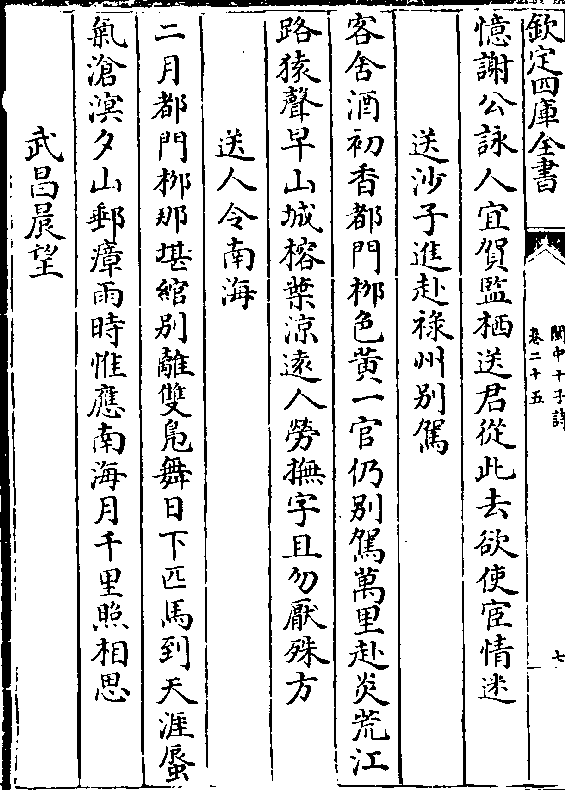 欽定四庫全書
閩中十子詩
卷二十五
七
憶謝公詠人宜賀監栖送君從此去欲使宦情迷
送沙子進赴祿州别駕
客舍酒初香都門栁色黄一官仍别駕萬里赴炎荒江
路猿聲早山城榕葉涼遠人勞撫字且勿厭殊方
送人令南海
二月都門栁那堪綰别離雙鳬舞日下匹馬到天涯蜃
氣滄溟夕山郵瘴雨時惟應南海月千里照相思
武昌晨望